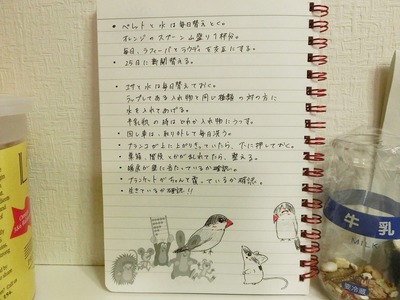 ・ペレットと水は毎日替えとく。
オレンジのスプーン山盛り1杯分。
毎日、ラフィーバとラウディを交互にする。
・25日に新聞替える。
・エサと水は毎日替えておく。
ラップしてある入れ物と同じ種類の対の方に
水を入れてあげる。
牛乳瓶の時はやわか入れ物にうつす。
・回し車は、取り外して毎日洗う。
・ブランコが上に上がりきっていたら、下に押しておく。
・巣箱、階段とかがみだれてたら、整える。
・暖房が巣に当たっているか確認。
・ブランケットがちゃんと覆っているか確認。
・生きているか確認!!
牛乳
MILK
要冷蔵